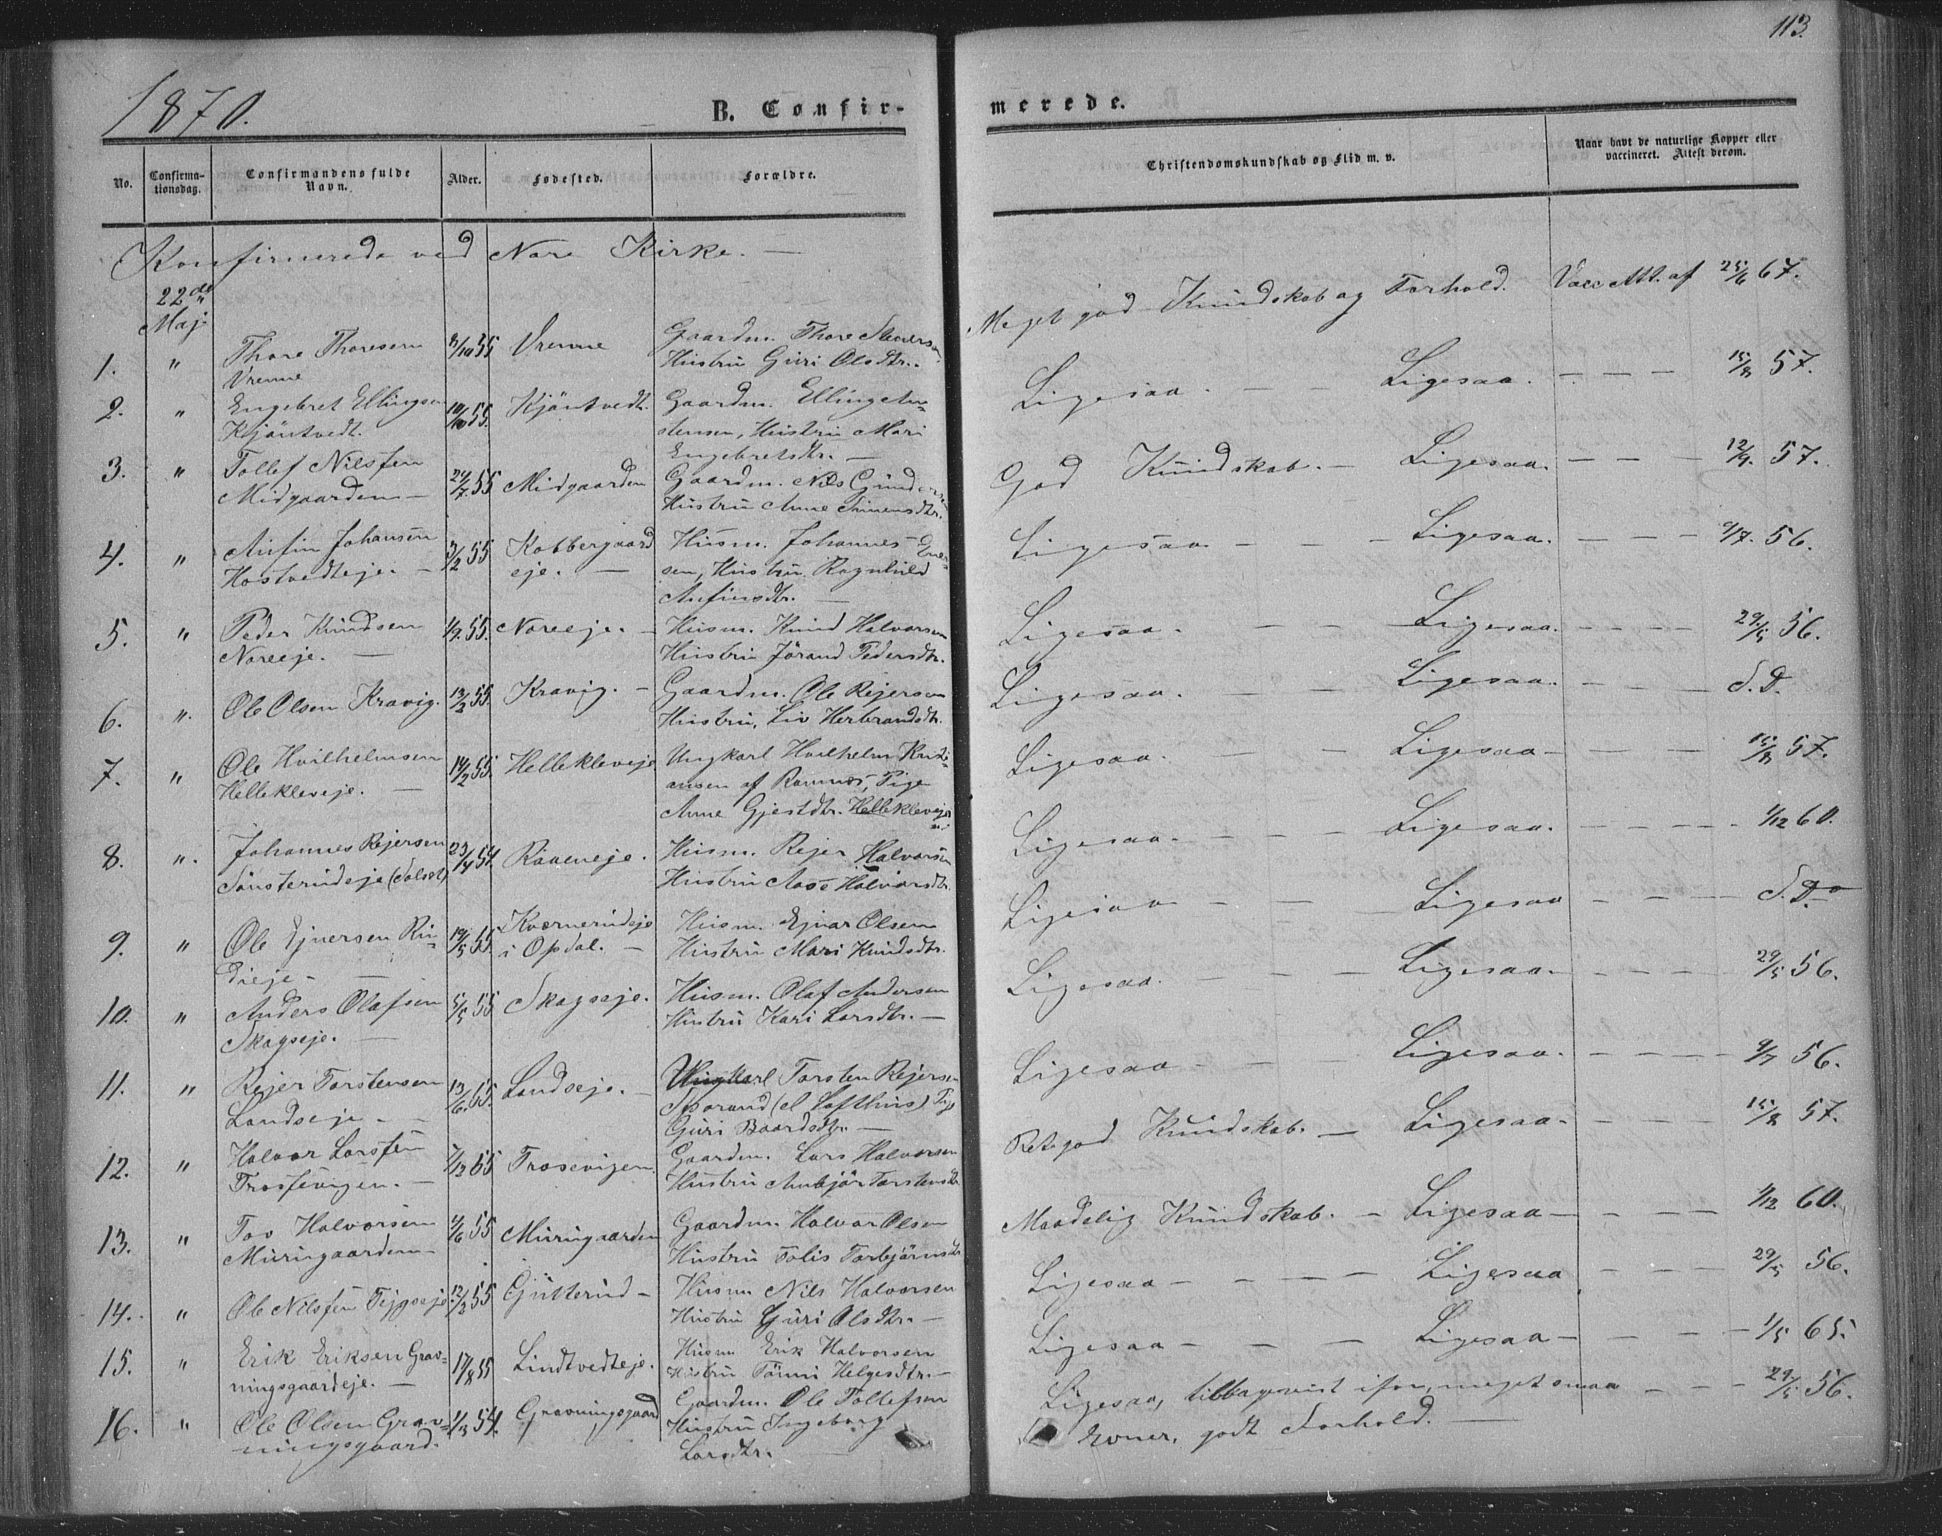 113.
1870.
B. Confir-
merede.
No.
Confirma-
tionsdag.
Confirmandens fulde
Navn.
Alder.
Fødested.
Forældre.
Christendomskundskab og Flid m. v.
Naar havt de naturlige Kopper eller
vaccineret. Attest derom.
Konfirmerede ved Nore Kirke. —
22de
Maj.
1. " Thore Thoresen 55 Vrenne Gaardm. Thore
Vrenne Hustru Guri Olsdtr.
Meget god Kundskab og Forhold. Vacc. Att. af 25/6 67.
2. " Engebret Ellingsen 10/10 55. Kjöntvedt. Gaardm. Elling
Kjöntvedt. Hustru Mari
Engebretsdtr. —
Ligesaa. — — Ligesaa. — — — 15/8 57.
3. " Tollef Nilssen 24/7 55 Midgaarden Gaardm. Nils
Midgaarden — Hustru Anne
God Kundskab. — Ligesaa. — — — 12/9 57.
4. " Anfin Johansen 3/2 55 Kobbergaard Husm. Johannes
Hostvedteje. — eje. — Hustru Ragnhild
Anfinsdtr. —
Ligesaa — — — Ligesaa. — — — 9/7 56.
5. " Peder Knudsen 55. Noreeje. — Husm. Knud Halvorsen
Noreeje. — Hustru Jörand Pedersdtr.
Ligesaa. — — — Ligesaa. — — — 29/5 56.
6. " Ole Olsen Kravig. 13/2 55. Kravig. — Gaardm. Ole Rejersen
Hustru, Liv Herbrandsdtr.
Ligesaa. — — — Ligesaa. — — — S. D.
7. " Ole Hvilhelmsen 14/2 55. Hellekleveje Ungkarl Hvilhelm Kristi-
Hellekleveje. — ansen af Ramnes, Pige
Anne Gjestdtr. Hellekleveje
Ligesaa. — — — Ligesaa — — — 15/8 57.
8. " Johannes Rejersen 23/4 54. Raaeneje. Husm. Rejer Halvorsen
Sönsterudeje Hustru Aase Halvorsdtr.
Ligesaa. — — — Ligesaa. — — — 1/12 60.
9. " Ole Ejnersen Ru- 19/5 55 Kvernerudeje Husm. Ejnar Olsen
dieje — i Opdal. — Hustru Mari Knudsdtr.
Ligesaa — — — Ligesaa — — — S. D.
10. " Anders Olafsen 5/5 55 Skagseje. Husm. Olaf Andersen
Skagseje. — Hustru Kari Larsdtr. —
Ligesaa. — — — Ligesaa. — — — 29/5 56.
11. " Rejer Torstensen 13/6 55. Landseje. — Ungkarl Torsten Rejersen
Landseje — (el. Lofthus) Pige
Guri Baardsdtr. —
Ligesaa — — — Ligesaa. — — — 9/7 56.
12. " Halvor Larssen 55 Trosevigen Gaardm. Lars Halvorsen
Trossevigen. — Hustru Anbjör Torstensdtr
Retgod Kundskab. — Ligesaa — — — 15/8 57.
13. " Tov Halvorsen 4/6 55 Murigaarden Gaardm. Halvor Olsen
Murigaarden — Hustru Tolis Torbjörnsdtr
Maadelig Kundskab. — Ligesaa — — — 1/12 60.
14. " Ole Nilssen 12/2 55 Gutterud — Husm Nils Halvorsen
Hustru Guri Olsdtr. —
Ligesaa — — — Ligesaa — — — 29/5 56.
15. " Erik Eriksen Grav- 17/8 55 Lindtvedteje. Husm Erik Halvorsen
ningsgaardeje. — Hustru Tönni Helgesdtr. —
Ligesaa — — — Ligesaa — — — 1/5 65.
16. " Ole Olsen Grav- 54. Gravningsgaard Gaardm. Ole Tollefsen
ningsgaard. Hustru Ingeborg
Larsdtr. —
Ligesaa, tilbagevist ifor, meget smaa — — — 29/5 56.
Evner, godt Forhold. —